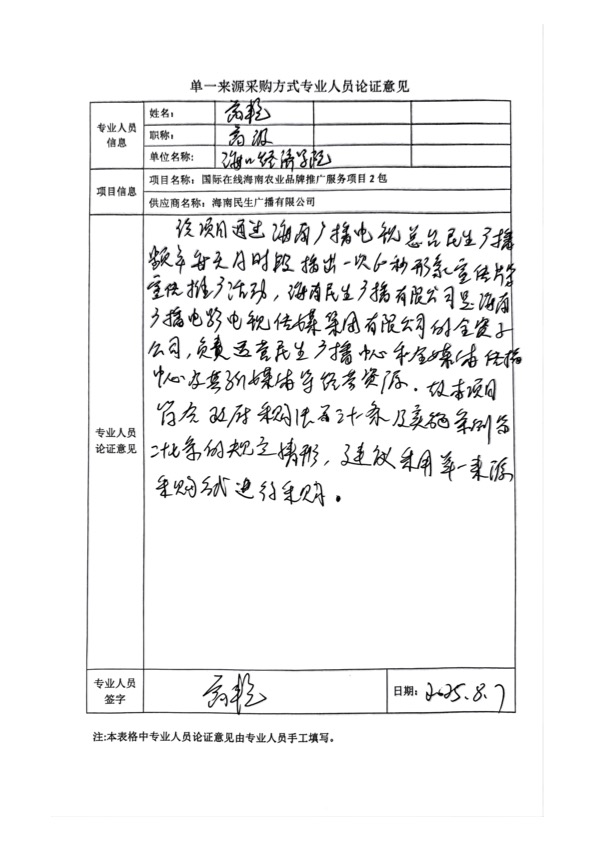 单一来源采购方式专业人员论证意见
专业人员信息
姓名：
职称： 高级
单位名称： 海口经济学院
项目信息
项目名称：国际在线海南农业品牌推广服务项目2包
供应商名称：海南民生广播有限公司
专业人员论证意见
该项目通过海南广播电视总台民生广播
频率每天 时段播出一次 秒形象宣传片等
宣传推广活动，海南民生广播有限公司是海南
广播电影电视传媒集团有限公司的全资子
公司，负责运营民生广播中心和全媒体传播
中心及其 媒体等经营资源。故本项目
符合政府采购法第三十一条及实施条例第
二十七条的规定情形，建议采用单一来源
采购方式进行采购。
专业人员签字
日期： 2025.8.7
注：本表格中专业人员论证意见由专业人员手工填写。